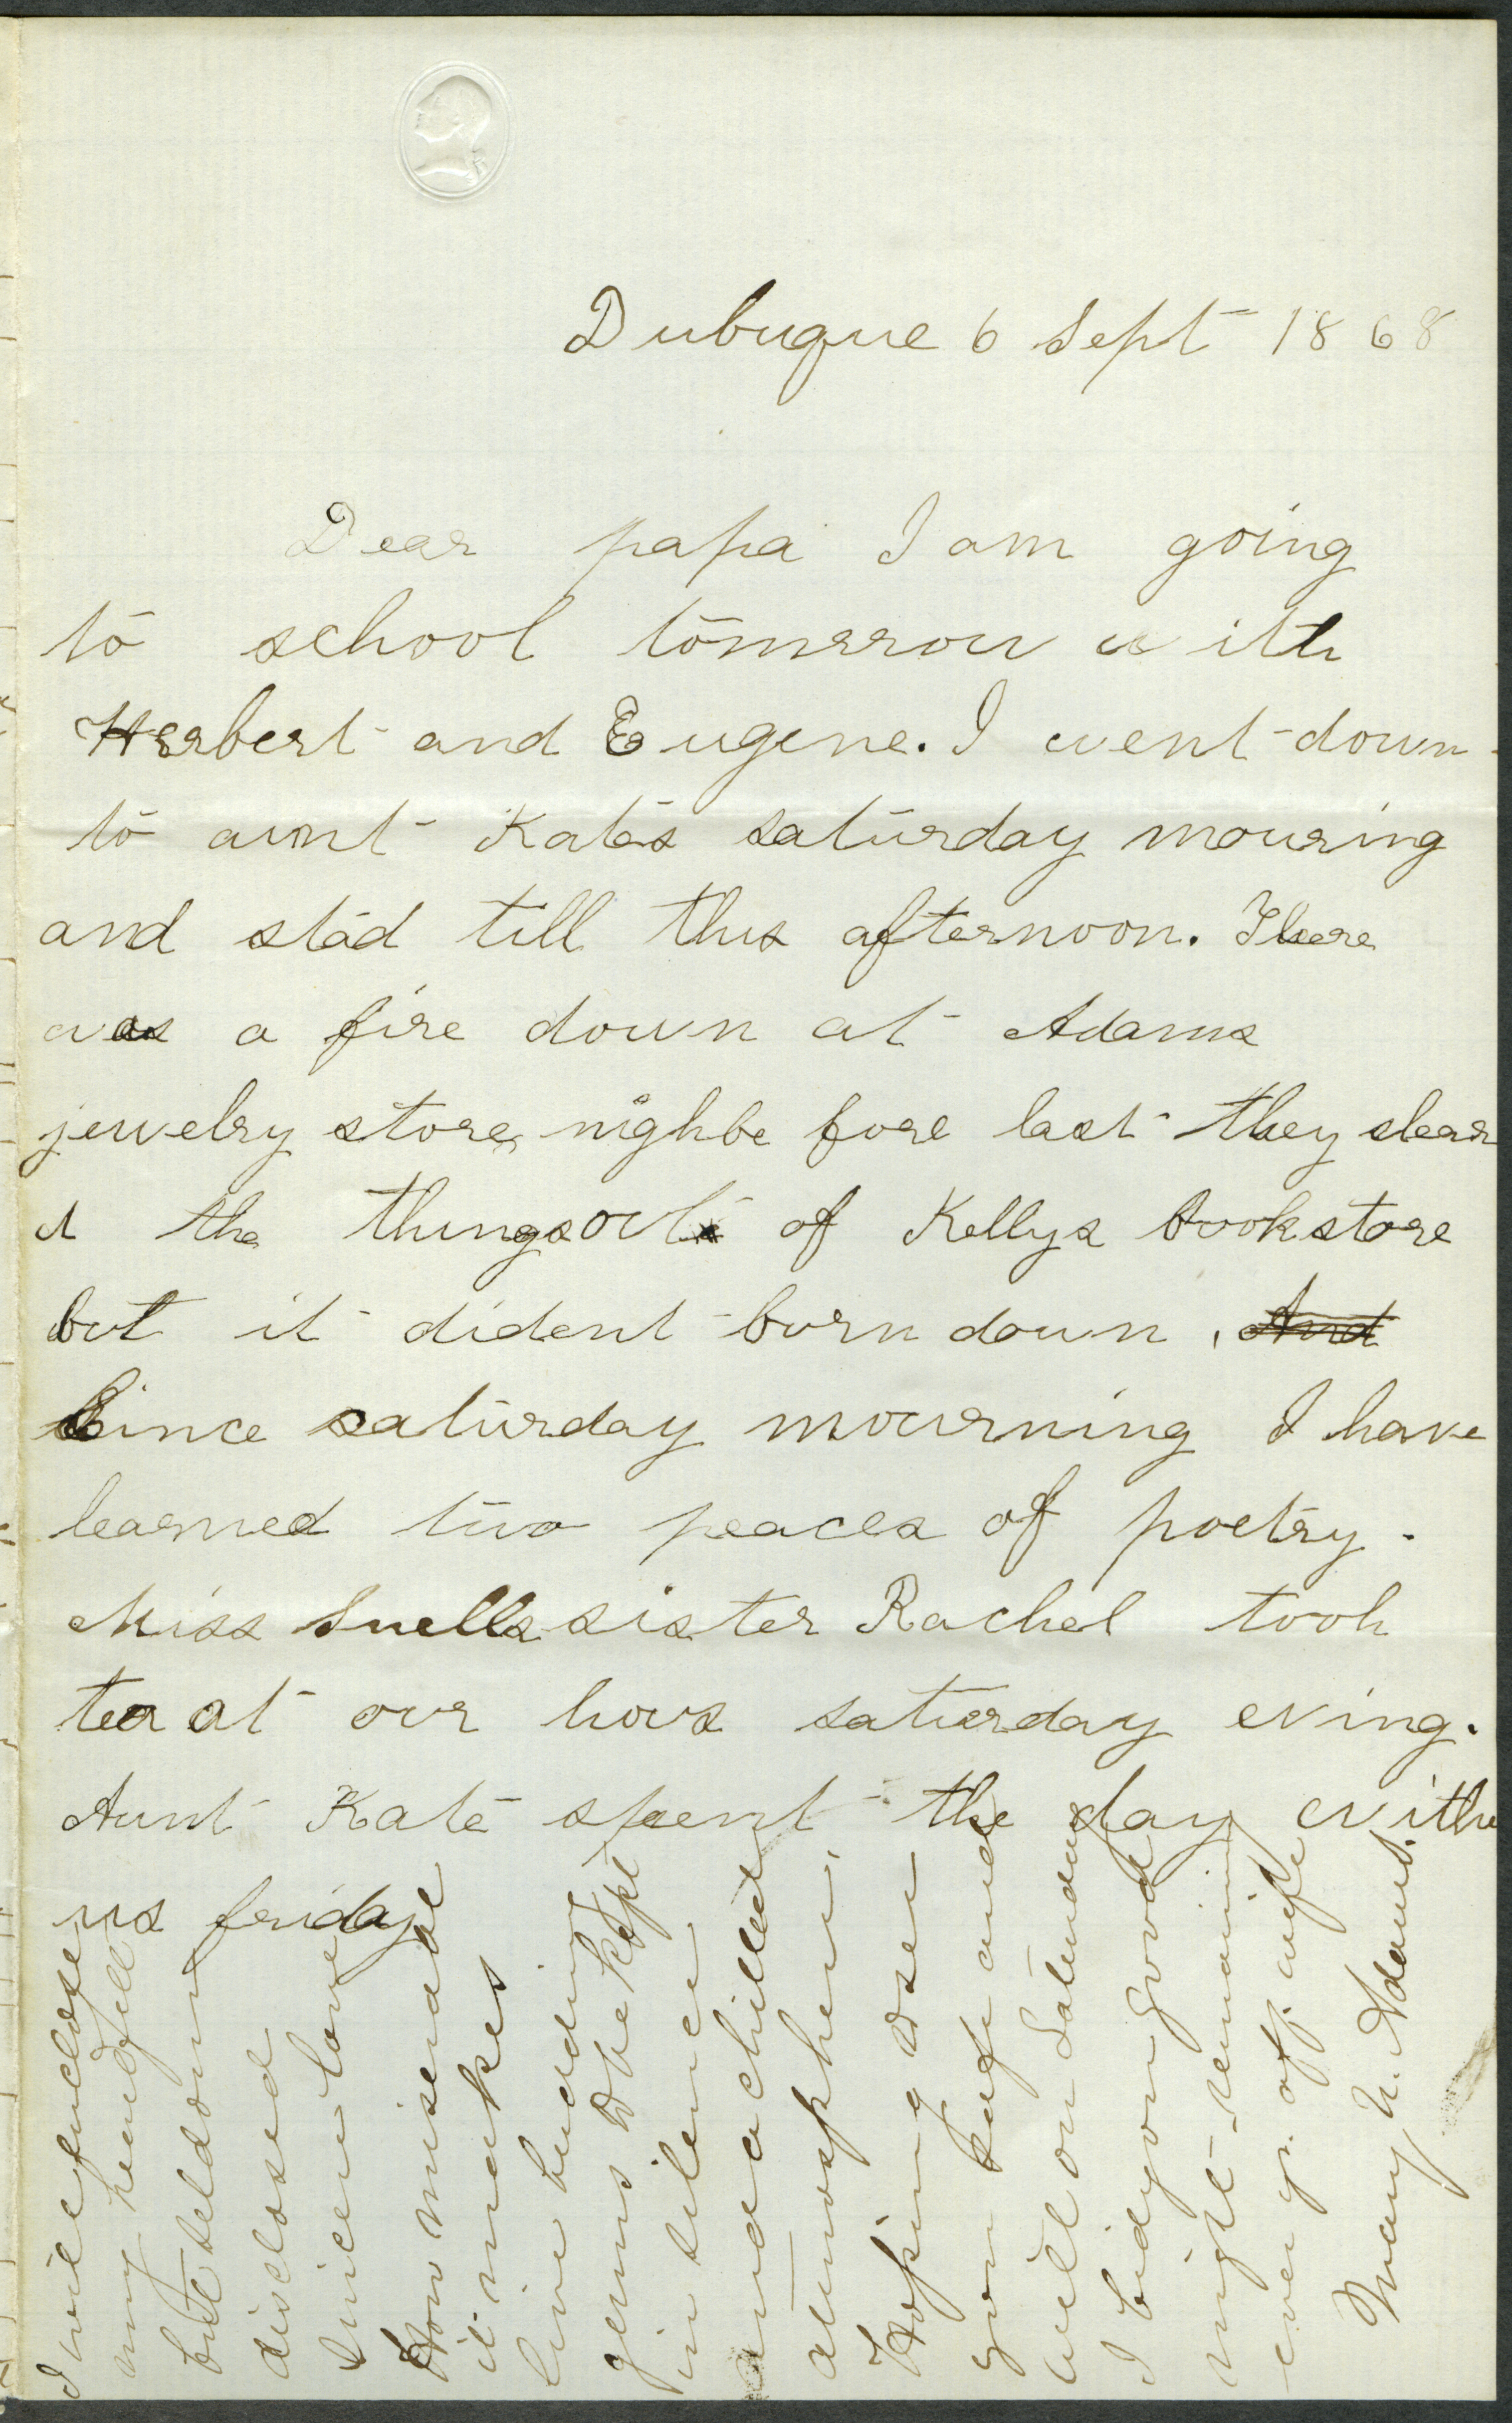 Dubuque 6 Sept 1868
Dear papa I am going
to school tomrrow with
Herbert and Eugene. I went down
to aunt Kates saturday mouring
and stad till this afternoon. There
was a fire down at Adams
jewelry store, nighbe fore last they clear
d the things out of Kellys bookstore
but it dident burn down. And
Since saturday mourning I have
learned two peaces of poetry.
Miss Snells sister Rachel took
tea at our hous saturday eving.
Aunt Kate spent the day with
us friday
I will enclose
my heartfelt
but seldom
disclosed
sincere love
How miserable
it makes
live budding
germs to be kept
in silence
and a chilled
atmosphere.
Hoping to see
you safe and
well on Saturday
I bid you good
night remaining
ever yr aff. wife
Mary N. Adams.